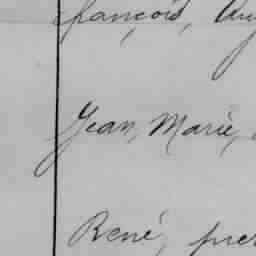 françois,
Jean, Marie,
René,